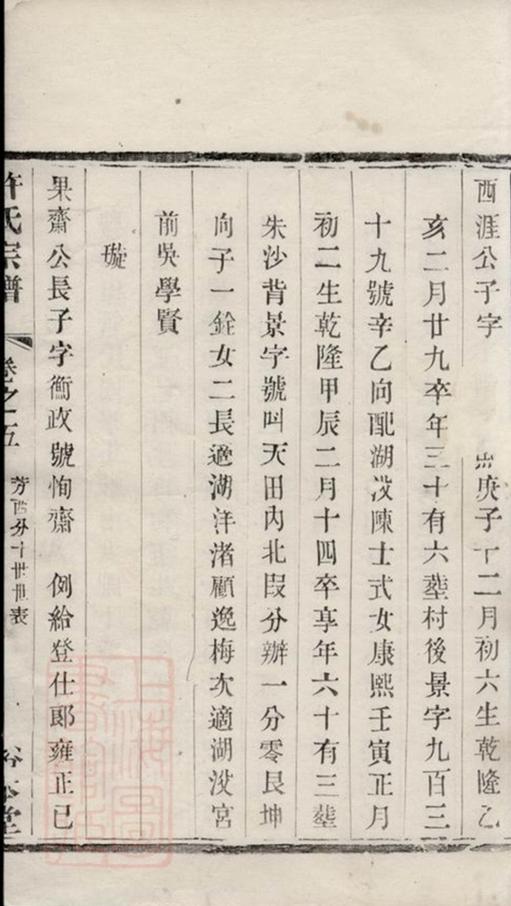 西涯公子字 庚子十二月初六生乾隆乙
亥二月廿九卒年三十有六塟村後景字九百三
十九號辛乙向配湖沒陳士式女康熙壬寅正月
初二生乾隆甲辰二月十四卒享年六十有三塟
朱沙背景字號叫天田內北叚分辦一分零艮坤
向子一銓女二長適湖洋渚顧逸梅次適湖沒宮
前吳學賢
璇
果齋公長子字衡政號恂齋 例給登仕郎雍正己
許氏宗譜 卷之五 世表